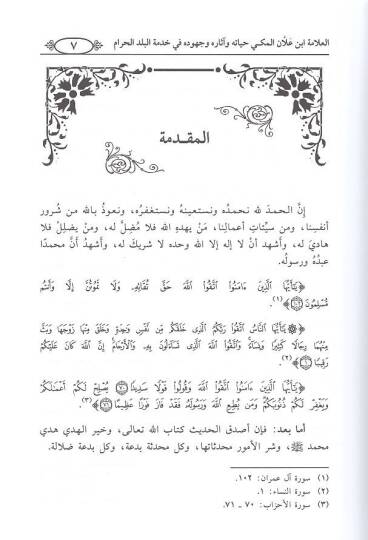 العلامة ابن علان المكي حياته وآثاره وجهوده في خدمة البلد الحرام
٧
المقدمة
إنَّ الحمدَ لله نحمدُه ونستعينُهُ ونستغفرُه، ونعوذُ بالله من شُرور
أنفسِنا، ومن سيِّئاتِ أعمالِنا، مَنْ يهدِهِ الله فلا مُضِلَّ له، ومنْ يضلِلْ فلا
هاديَ له، وأشهد أنْ لا إله إلا الله وحده لا شريكَ له، وأشهدُ أنَّ محمدًا
عبدُهُ ورسولُه.
﴿يَٰٓأَيُّهَا ٱلَّذِينَ ءَامَنُوا۟ ٱتَّقُوا۟ ٱللَّهَ حَقَّ تُقَاتِهِۦ وَلَا تَمُوتُنَّ إِلَّا وَأَنتُم
مُّسْلِمُونَ ١٠٢﴾(١).
﴿يَٰٓأَيُّهَا ٱلنَّاسُ ٱتَّقُوا۟ رَبَّكُمُ ٱلَّذِى خَلَقَكُم مِّن نَّفْسٍ وَٰحِدَةٍ وَخَلَقَ مِنْهَا زَوْجَهَا وَبَثَّ
مِنْهُمَا رِجَالًا كَثِيرًا وَنِسَآءً وَٱتَّقُوا۟ ٱللَّهَ ٱلَّذِى تَسَآءَلُونَ بِهِۦ وَٱلْأَرْحَامَ إِنَّ ٱللَّهَ كَانَ عَلَيْكُمْ
رَقِيبًا ١﴾(٢).
﴿يَٰٓأَيُّهَا ٱلَّذِينَ ءَامَنُوا۟ ٱتَّقُوا۟ ٱللَّهَ وَقُولُوا۟ قَوْلًا سَدِيدًا ٧٠ يُصْلِحْ لَكُمْ أَعْمَٰلَكُمْ
وَيَغْفِرْ لَكُمْ ذُنُوبَكُمْ وَمَن يُطِعِ ٱللَّهَ وَرَسُولَهُۥ فَقَدْ فَازَ فَوْزًا عَظِيمًا ٧١﴾(٣).
أما بعد: فإن أصدق الحديث كتاب الله تعالى، وخير الهدي هدي
محمد ﷺ، وشر الأمور محدثاتها، وكل محدثة بدعة، وكل بدعة ضلالة.
(١) سورة آل عمران: ١٠٢.
(٢) سورة النساء: ١.
(٣) سورة الأحزاب: ٧٠ - ٧١.